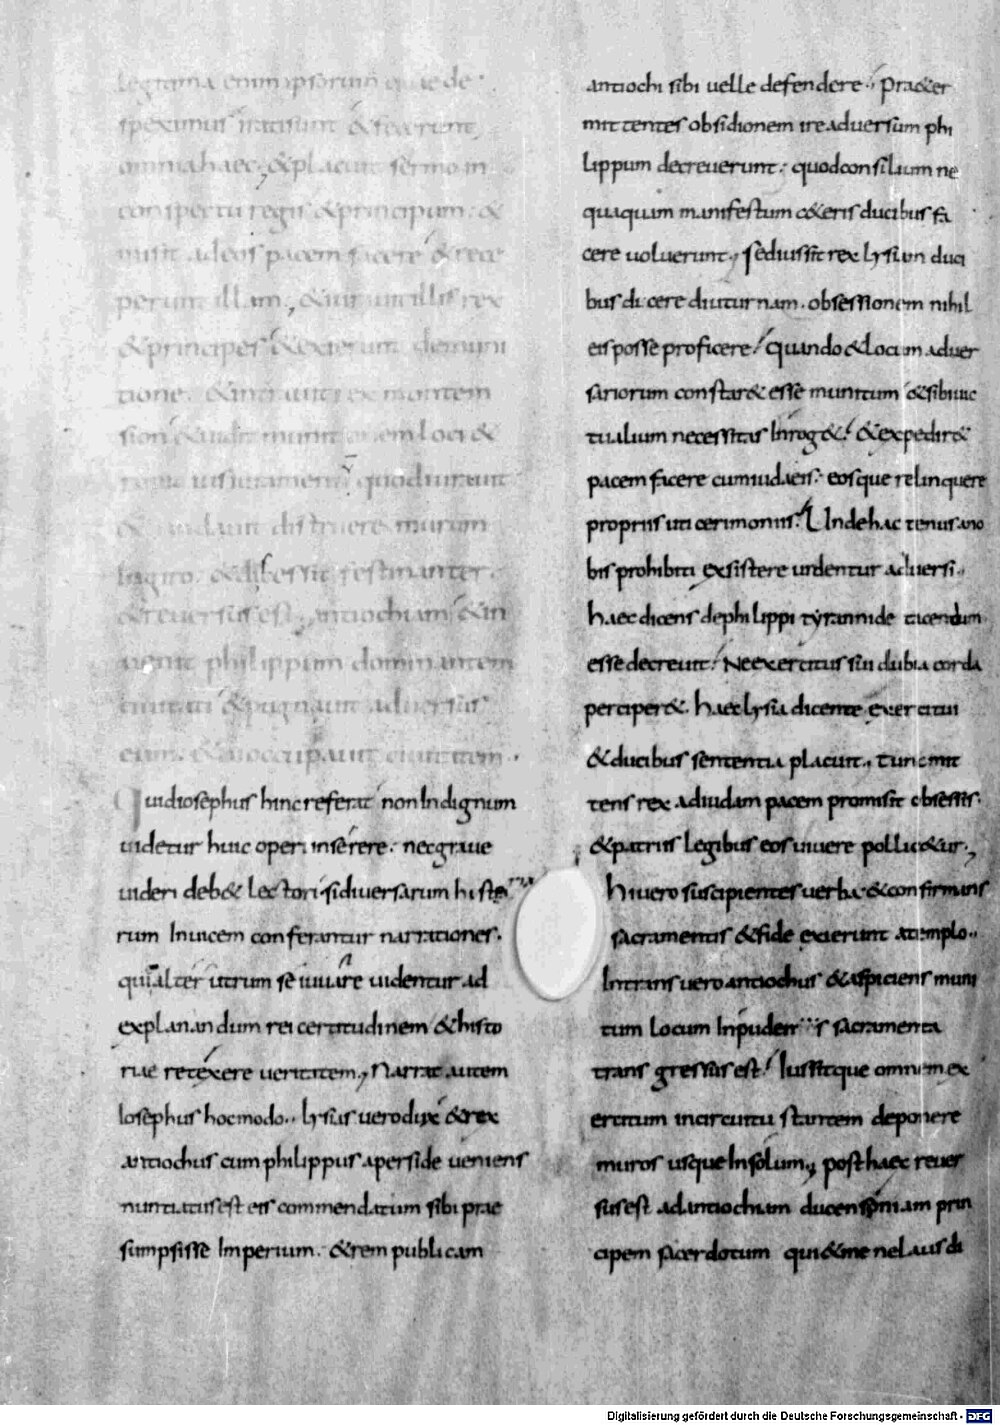 legitima enim ipsorum quae de
speximus irati sunt & fecerunt
omnia haec, & placuit sermo in
conspectu regis & principum. &
misit ad eos pacem facere & rece
perunt illam, & iurauit illis rex
& principes & exierunt de muni
tione. & intrauit rex montem
sion & uidit munitionem loci &
iusiuramentū quod iurauit
& mandauit distruere murum
in giro. & discessit festinanter.
& reuersus est antiochiam & in
uenit philippum dominantem
ciuitati & pugnauit aduersus
eum. & occupauit ciuitatem.
Quid iosephus hinc referat non Indignum
uidetur huic operi inserere. nec graue
uideri deb& lectori si diuersarum histo
rum Inuicem conferantur narrationes.
qualiter utrum se iuuare uidentur ad
explanandum rei certitudinem & histo
riae retexere ueritatem, Narrat autem
Iosephus hoc modo.. lysias uero dux & rex
antiochus cum philippus a perside ueniens
nuntiatus est eis commendatum sibi prae
sumpsisse Imperium. & rem publicam
antiochi sibi uelle defendere.. Praeter
mittentes obsidionem ire aduersum phi
lippum decreuerunt. quod consilium ne
quaquam manifestum c&eris ducibus fa
cere uoluerunt, sed iussit rex lysian duci
bus dicere diuturnam. obsessionem nihil
eis posse proficere! quando & locum aduer
sariorum constar& esse munitum & sibi uic
tualium necessitas Inrog&! & expedir&
pacem facere cum iudaeis. eosque relinquere
propriis uti cerimoniis. Unde hac tenus a no
bis prohibiti exsistere uidentur aduersi..
haec dicens de philippi tyrannide tacendum
esse decreuit! Ne exercitus sui dubia corda
perciper&. haec lysia dicente exercitui
& ducibus sententia placuit.. tunc mit
tens rex ad iudam pacem promisit obsessis.
& patriis legibus eos uiuere pollic&ur,
hi uero suscipientes uerba & confirmans
sacramentis & fide exierunt a templo..
Intrans uero antiochus & aspiciens muni
tum locum Inpudens sacramenta
transgressus est! Iussitque omnem ex
ercitum in circuitu stantem deponere
muros usque In solum, post haec reuer
sus est ad antiochiam ducens oniam prin
cipem sacerdotum qui & menelaus di